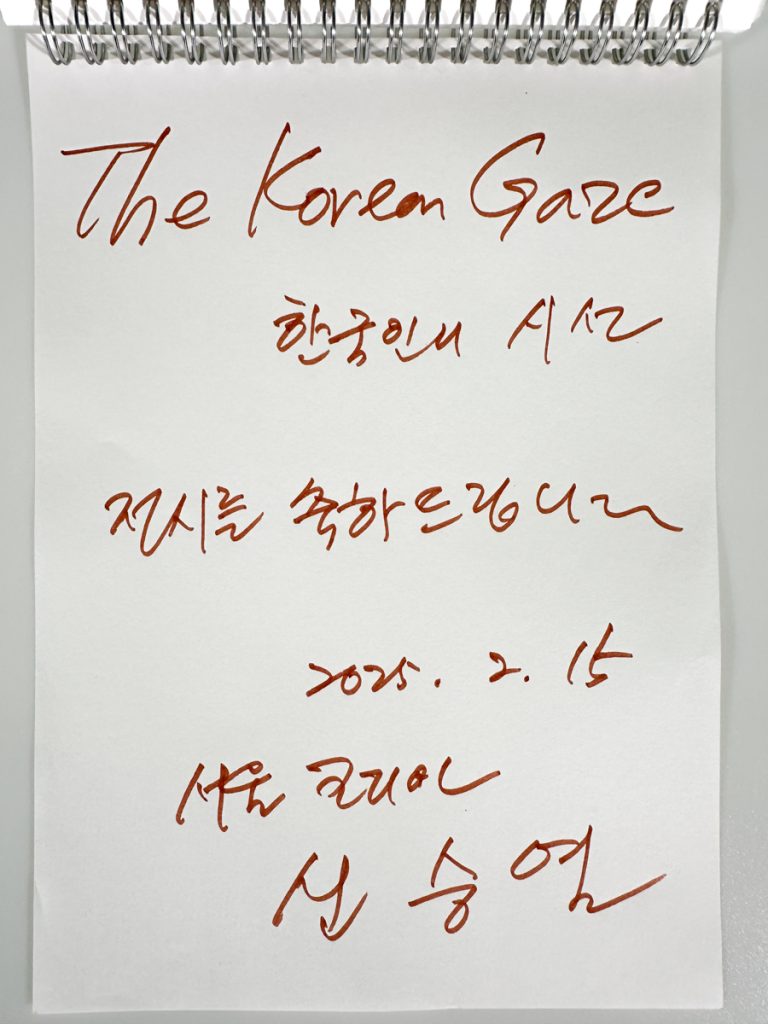 The Korean Gaze
한국인의 시선
전시를 축하드립니다
2025. 2. 15
서울 코리아
신승열